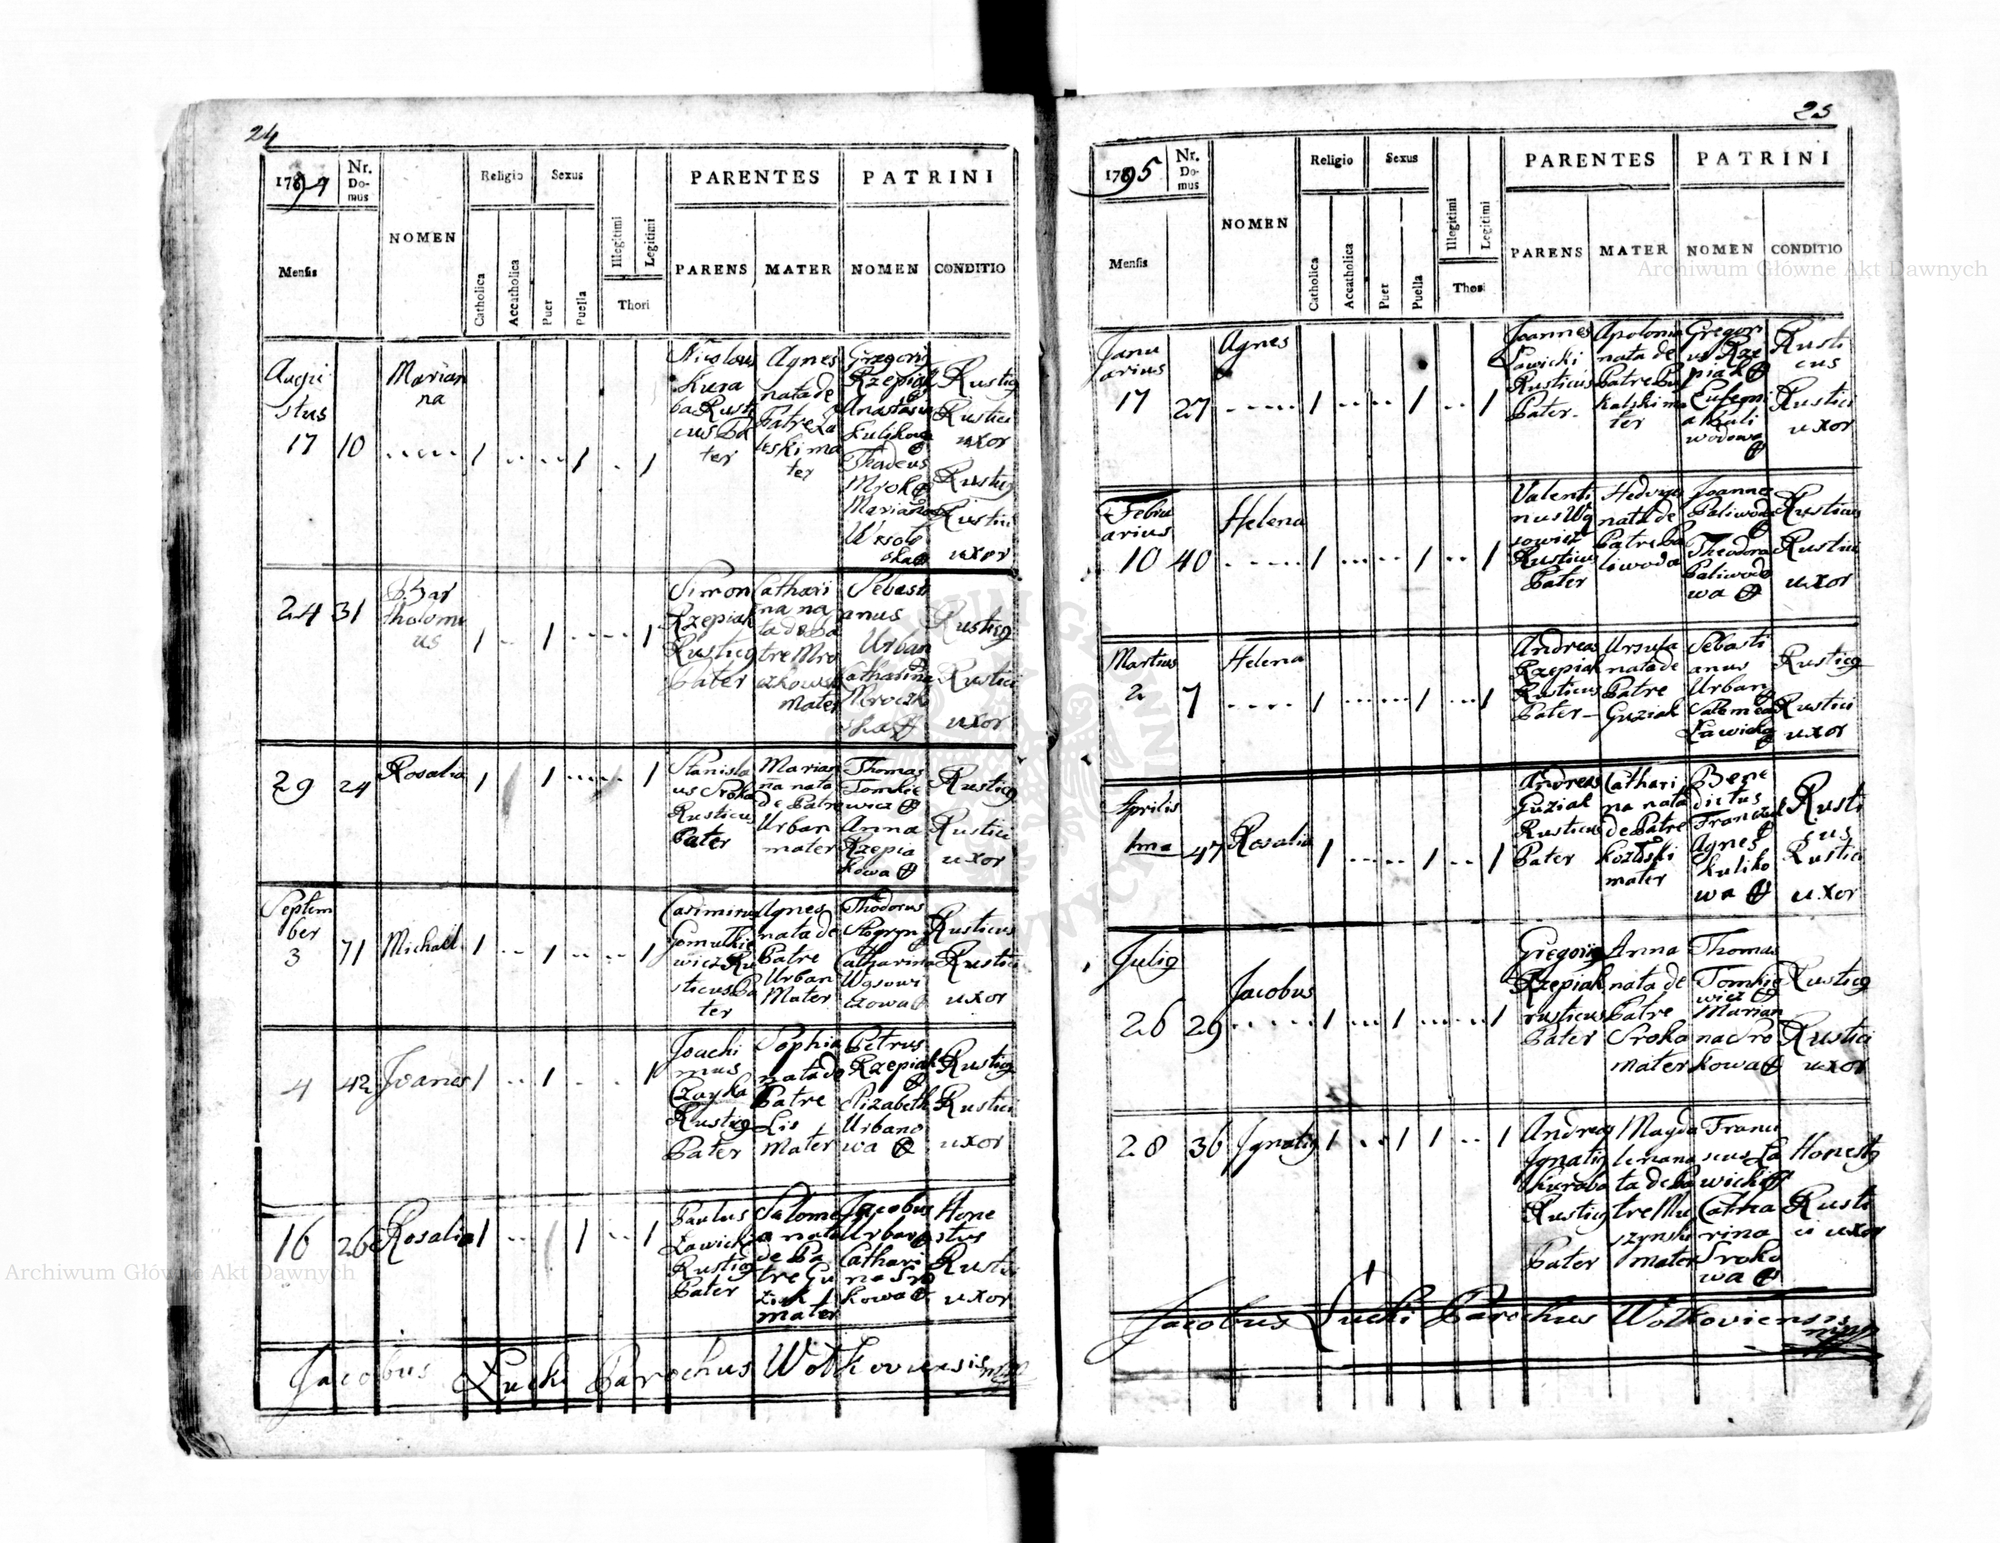 24
1794
Nr. Domus
NOMEN
Religio
Sexus
PARENTES
PATRINI
Mensis
Catholica
Accatholica
Puer
Puella
Illegitimi
Legitimi
Thori
PARENS
MATER
NOMEN
CONDITIO
Augu
stus
17
10
Marian
na
Nicolaus
Kura
ba Rusti
cus Pa
ter
Agnes
nata de
Patre
ma
ter
Gregorij
Rzepiak
Anastasia
Kulikowa
Thadeus
Mrok
Marianna
Rusticg
Rustici
uxor
Rusticg
Rustici
uxor
24
31
Bar
tholome
us
Simon
Rzepiak
Rusticg
Pater
Cathari
na na
ta de Pa
tre Mro
czkowsk
mater
Sebasti
anus
Urban
Catharina
Mroczk
ska
Rusticg
Rustici
uxor
29
24
Rosalia
Stanisla
us Sroka
Rusticus
Pater
Marian
na nata
de Patre
Urban
mater
Thomas
Tomkie
wicz
Anna
Rzepia
kowa
Rusticg
Rustici
uxor
Septem
ber
3
71
Michael
Casimirus
Gomulkie
wicz Ru
sticus Pa
ter
Agnes
nata de
Patre
Urban
Mater
Thodorus
Catharina
Wąsowi
czowa
Rusticus
Rustici
uxor
4
42
Joanes
Joachi
mus
Czayka
Rusticg
Pater
Sophia
nata de
Patre
Lis
Mater
Petrus
Rzepiak
Elizabeth
Urbano
wa
Rusticg
Rustici
uxor
16
26
Rosalia
Paulus
Ławicki
Rusticg
Pater
Salome
a nata
de Pa
tre Gu
ziak
mater
Jacobus
Urban
Cathari
na Sro
kowa
Hone
stus
Rustici
uxor
Jacobus Łucki Parochus Wolkoviensis mpp
25
1795
Nr. Domus
NOMEN
Religio
Sexus
PARENTES
PATRINI
Mensis
Catholica
Accatholica
Puer
Puella
Illegitimi
Legitimi
Thori
PARENS
MATER
NOMEN
CONDITIO
Janu
arius
17
27
Agnes
Joannes
Ławicki
Rusticus
Pater
Apolonia
nata de
Patre
ma
ter
Gregori
us Rze
piak
Eufemi
a Pali
wodowa
Rusti
cus
Rustici
uxor
Febru
arius
10
40
Helena
Valenti
nus Wą
sowicz
Rusticus
Pater
Hedvigis
nata de
Patre Pa
liwoda
Joannes
Paliwoda
Theodora
Paliwodo
wa
Rusticus
Rustici
uxor
Martius
2
7
Helena
Andreas
Rzepiak
Rusticus
Pater
Ursula
nata de
Patre
Guziak
Sebasti
anus
Urban
Salomea
Ławicka
Rusticg
Rustici
uxor
Aprilis
1ma
47
Rosalia
Andreas
Guziak
Rusticus
Pater
Cathari
na nata
de Patre
Kozłoski
mater
Bene
dictus
Agnes
Kuliko
wa
Rusti
cus
Rustici
uxor
Julig
26
29
Jacobus
Gregorig
Rzepiak
rusticus
Pater
Anna
nata de
Patre
Sroka
mater
Thomas
Tomkie
wicz
Marian
na Sro
kowa
Rusticg
Rustici
uxor
28
36
Ignatig
Andreas
Ignatig
Kuraba
Rusticg
Pater
Magda
lena na
ta de Pa
tre Mu
szynski
mater
Franci
scus Ła
wicki
Catha
rina
Sroko
wa
Honestg
Rusti
ci uxor
Jacobus Łucki Parochus Wolkoviensis mpp
Archiwum Główne Akt Dawnych
Archiwum Główne Akt Dawnych